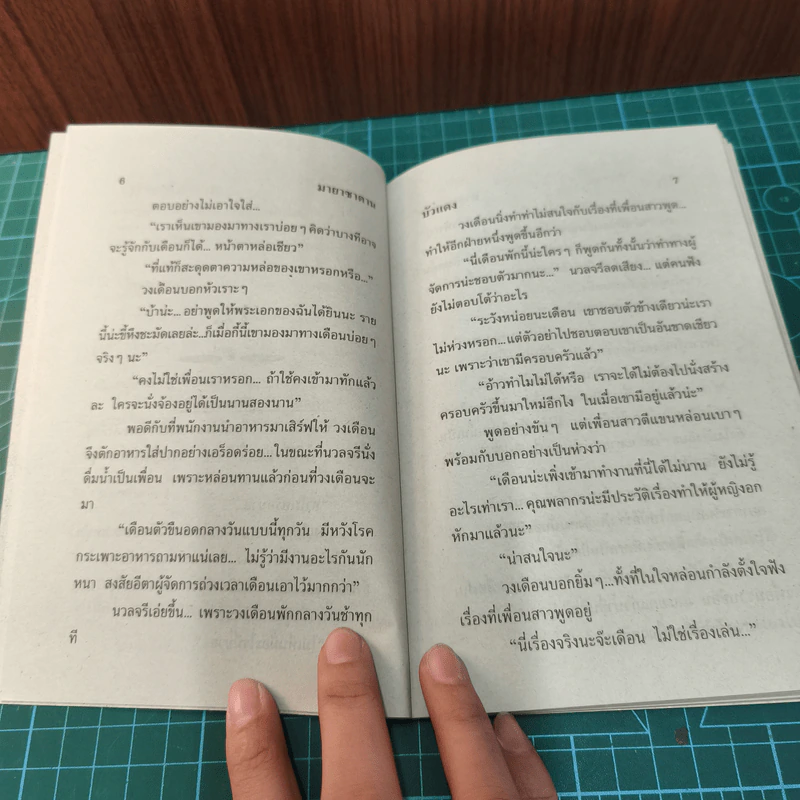 6
มายาซาตาน
ตอบอย่างไม่เอาใจใส่...
“เราเห็นเขามองมาทางเราบ่อย ๆ คิดว่าบางทีอาจ
จะรู้จักกับเดือนก็ได้... หน้าตาหล่อเชียว”
“ที่แท้ก็สะดุดตาความหล่อของเขาหรอกหรือ...”
วงเดือนบอกหัวเราะ ๆ
“บ้าน่ะ... อย่าพูดให้พระเอกของฉันได้ยินนะ ราย
นี้น่ะขี้หึงชะมัดเลยล่ะ...ก็เมื่อกี้นี้เขามองมาทางเดือนบ่อย ๆ
จริง ๆ นะ”
“คงไม่ใช่เพื่อนเราหรอก... ถ้าใช้คงเข้ามาทักแล้ว
ละ ใครจะนั่งจ้องอยู่ได้เป็นนานสองนาน”
พอดีกับที่พนักงานนำอาหารมาเสิร์ฟให้ วงเดือน
จึงตักอาหารใส่ปากอย่างเอร็ดอร่อย... ในขณะที่นวลจรีนั่ง
ดื่มน้ำเป็นเพื่อน เพราะหล่อนทานแล้วก่อนที่วงเดือนจะ
มา
“เดือนตัวขืนอดกลางวันแบบนี้ทุกวัน มีหวังโรค
กระเพาะอาหารถามหาแน่เลย... ไม่รู้ว่ามีงานอะไรกันนัก
หนา สงสัยอีตาผู้จัดการถ่วงเวลาเดือนเอาไว้มากกว่า”
นวลจรีเอ่ยขึ้น... เพราะวงเดือนพักกลางวันช้าทุก
ที
บัวแดง
7
วงเดือนนิ่งทำทำไม่สนใจกับเรื่องที่เพื่อนสาวพูด...
ทำให้อีกฝ่ายหนึ่งพูดขึ้นอีกว่า
“นี่เดือนพักนี้น่ะใคร ๆ ก็พูดกันทั้งนั้นว่าทำทางผู้
จัดการน่ะชอบตัวมากนะ...” นวลจรีลดเสียง... แต่คนฟัง
ยังไม่ตอบโต้ว่าอะไร
“ระวังหน่อยนะเดือน เขาชอบตัวข้างเดียวน่ะเรา
ไม่ห่วงหรอก... แต่ตัวอย่าไปชอบตอบเขาเป็นอันขาดเชียว
นะ เพราะว่าเขามีครอบครัวแล้ว”
“อ้าวทำไมไม่ได้หรือ เราจะได้ไม่ต้องไปนั่งสร้าง
ครอบครัวขึ้นมาใหม่อีกไง ในเมื่อเขามีอยู่แล้วน่ะ”
พูดอย่างขัน ๆ แต่เพื่อนสาวตีแขนหล่อนเบา ๆ
พร้อมกับบอกอย่างเป็นห่วงว่า
“เดือนน่ะเพิ่งเข้ามาทำงานที่นี่ได้ไม่นาน ยังไม่รู้
อะไรเท่าเรา... คุณพลากรน่ะมีประวัติเรื่องทำให้ผู้หญิงอก
หักมาแล้วนะ”
“น่าสนใจนะ”
วงเดือนบอกยิ้ม ๆ...ทั้งที่ในใจหล่อนกำลังตั้งใจฟัง
เรื่องที่เพื่อนสาวพูดอยู่
“นี่เรื่องจริงนะจ๊ะเดือน ไม่ใช่เรื่องเล่น...”